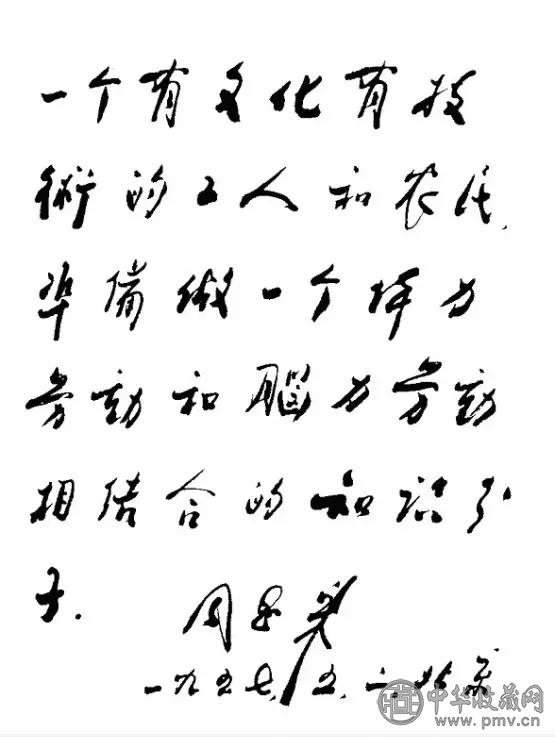 一个有文化有技
術的工人和农民,
準備做一个体力
劳动和腦力劳动
相结合的知识分
子.
周恩来
一九五七,五,北京
中华收藏网
www.pmv.cn